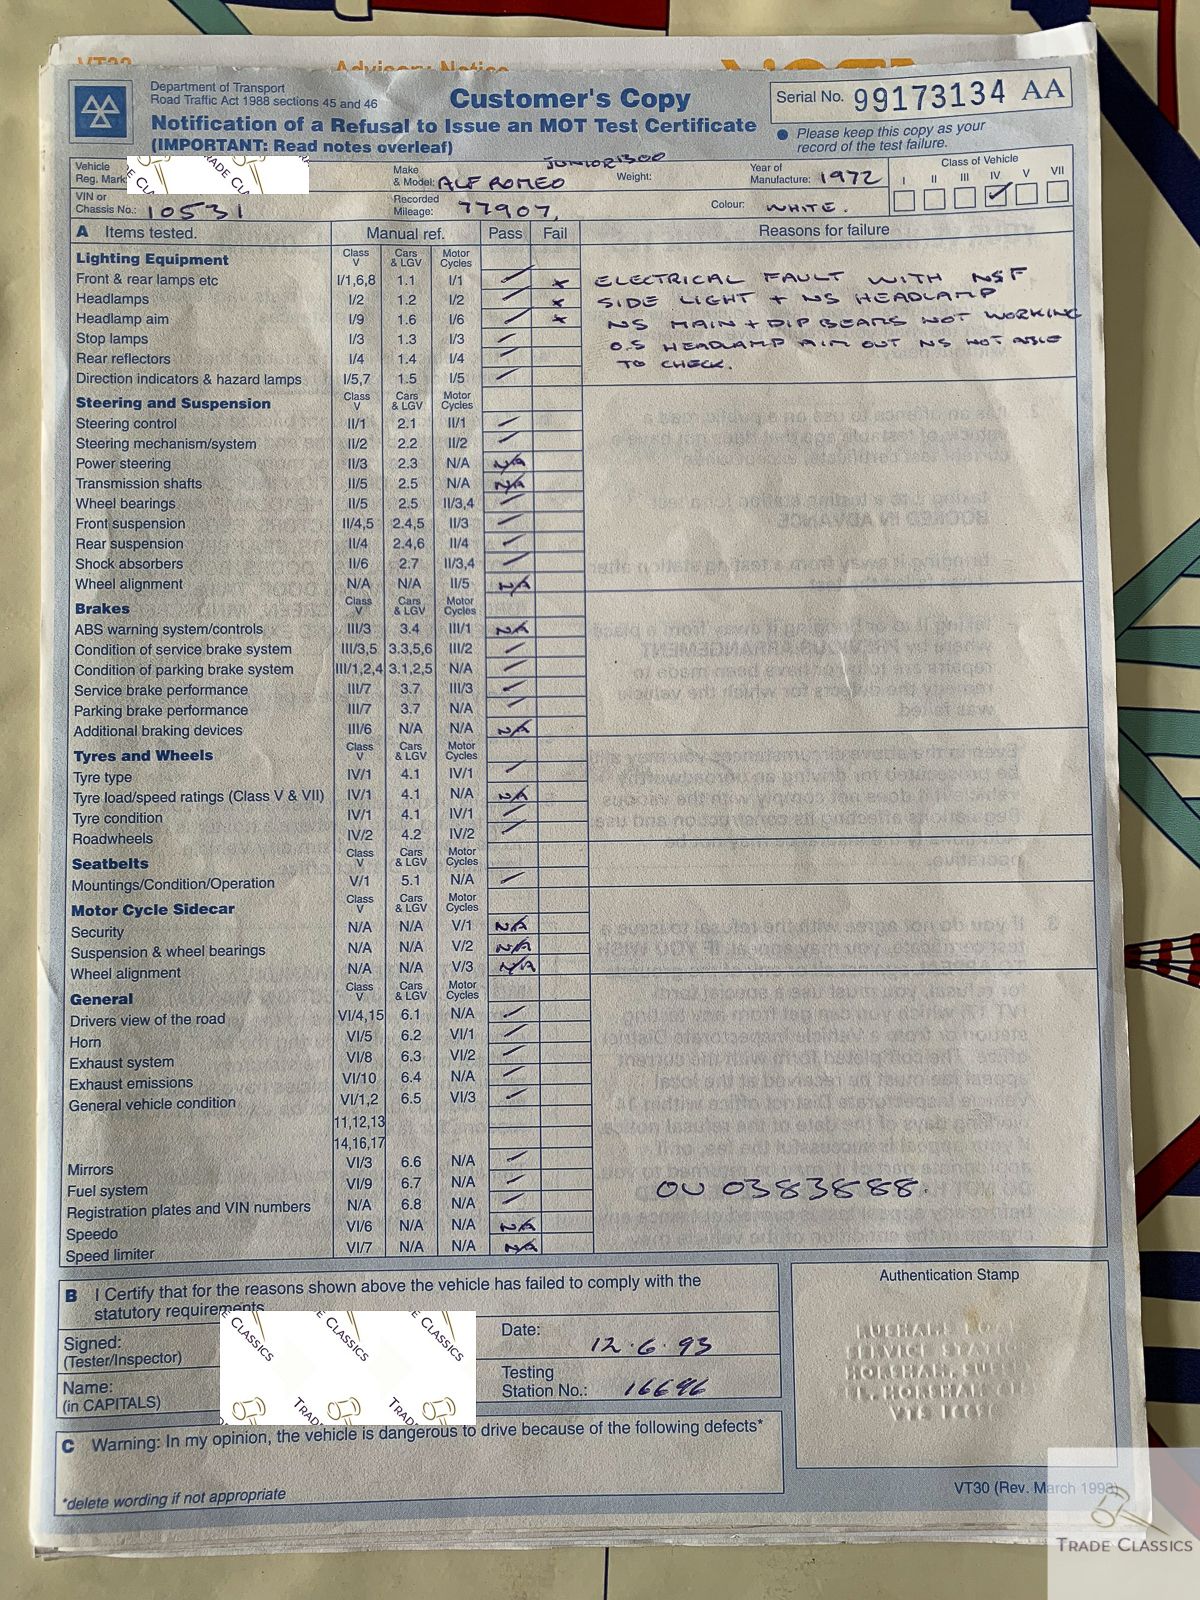 VT32 Advisory Notice
Department of Transport
Road Traffic Act 1988 sections 45 and 46
Customer's Copy
Notification of a Refusal to Issue an MOT Test Certificate
(IMPORTANT: Read notes overleaf)
Serial No. 99173134 AA
● Please keep this copy as your
record of the test failure.
Vehicle
Reg. Mark:
Make
& Model: ALF ROMEO JUNIOR 1300
Weight:
Year of
Manufacture: 1972
Class of Vehicle
I II III IV V VII
VIN or
Chassis No.: 10531
Recorded
Mileage: 77907,
Colour: WHITE.
A Items tested. Manual ref. Pass Fail Reasons for failure
Lighting Equipment Class V Cars & LGV Motor Cycles
Front & rear lamps etc I/1,6,8 1.1 I/1 ELECTRICAL FAULT WITH NSF
Headlamps I/2 1.2 I/2 SIDE LIGHT + NS HEADLAMP
Headlamp aim I/9 1.6 I/6 NS MAIN + DIP BEAMS NOT WORKING
Stop lamps I/3 1.3 I/3 O.S HEADLAMP AIM OUT NS NOT ABLE
Rear reflectors I/4 1.4 I/4 TO CHECK.
Direction indicators & hazard lamps I/5,7 1.5 I/5
Steering and Suspension Class V Cars & LGV Motor Cycles
Steering control II/1 2.1 II/1
Steering mechanism/system II/2 2.2 II/2
Power steering II/3 2.3 N/A N/A
Transmission shafts II/5 2.5 N/A N/A
Wheel bearings II/5 2.5 II/3,4
Front suspension II/4,5 2.4,5 II/3
Rear suspension II/4 2.4,6 II/4
Shock absorbers II/6 2.7 II/3,4
Wheel alignment N/A N/A II/5 N/A
Brakes Class V Cars & LGV Motor Cycles
ABS warning system/controls III/3 3.4 III/1 N/A
Condition of service brake system III/3,5 3.3,5,6 III/2
Condition of parking brake system III/1,2,4 3.1,2,5 N/A
Service brake performance III/7 3.7 III/3
Parking brake performance III/7 3.7 N/A
Additional braking devices III/6 N/A N/A N/A
Tyres and Wheels Class V Cars & LGV Motor Cycles
Tyre type IV/1 4.1 IV/1
Tyre load/speed ratings (Class V & VII) IV/1 4.1 N/A N/A
Tyre condition IV/1 4.1 IV/1
Roadwheels IV/2 4.2 IV/2
Seatbelts Class V Cars & LGV Motor Cycles
Mountings/Condition/Operation V/1 5.1 N/A
Motor Cycle Sidecar Class V Cars & LGV Motor Cycles
Security N/A N/A V/1 N/A
Suspension & wheel bearings N/A N/A V/2 N/A
Wheel alignment N/A N/A V/3 N/A
General Class V Cars & LGV Motor Cycles
Drivers view of the road VI/4,15 6.1 N/A
Horn VI/5 6.2 VI/1
Exhaust system VI/8 6.3 VI/2
Exhaust emissions VI/10 6.4 N/A
General vehicle condition VI/1,2 6.5 VI/3
11,12,13
14,16,17
Mirrors VI/3 6.6 N/A
Fuel system VI/9 6.7 N/A
Registration plates and VIN numbers N/A 6.8 N/A
Speedo VI/6 N/A N/A N/A
Speed limiter VI/7 N/A N/A N/A
OU 0383888.
B I Certify that for the reasons shown above the vehicle has failed to comply with the
statutory requirements
Signed:
(Tester/Inspector)
Date: 12.6.93
Name:
(in CAPITALS)
Testing
Station No.: 16696
Authentication Stamp
SERVICE STATION
C Warning: In my opinion, the vehicle is dangerous to drive because of the following defects*
*delete wording if not appropriate
VT30 (Rev. March 1993)
TRADE CLASSICS